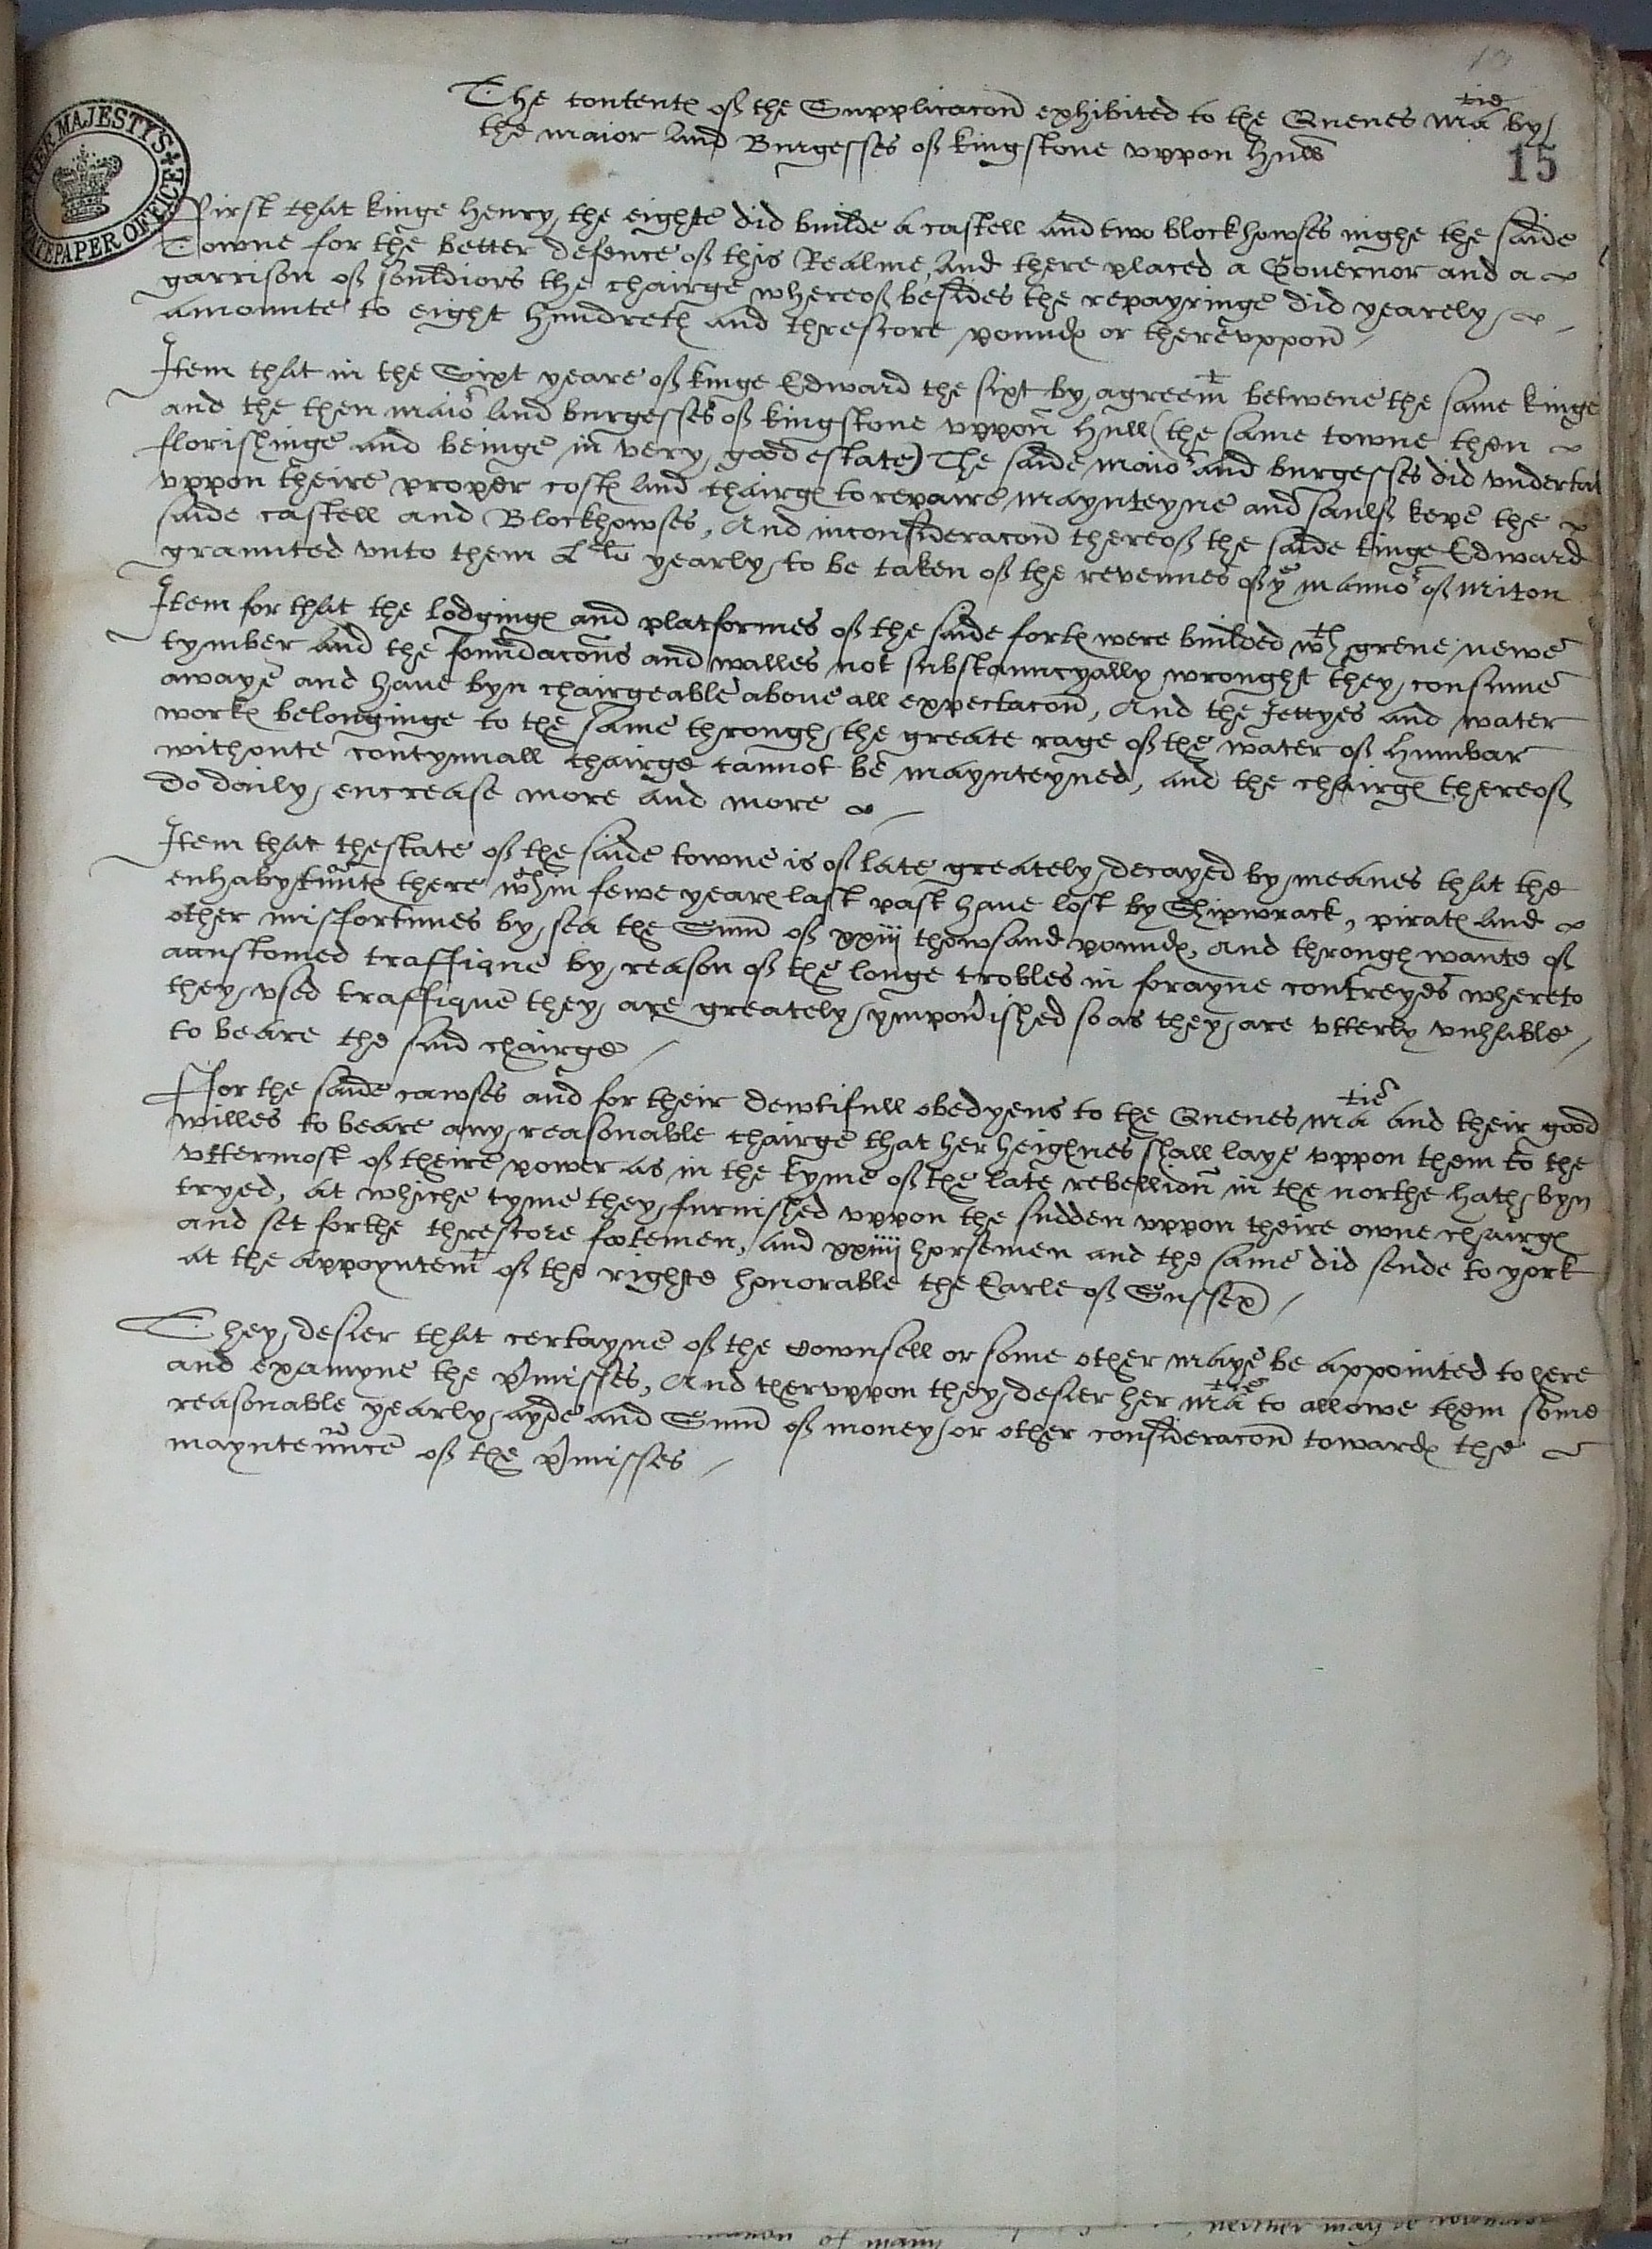 15
The contentes of the Supplicacon exhibited to the Quenes Matie by
the maior and Burgesses of kingstone vppon Hull
HER MAJESTY'S
STATE PAPER OFFICE
First that kinge Henry the eighte did builde a castell and two blockhowses nighe the saide
Towne for the better defence of this Realme, and there placed a Governor and a
garrison of souldiors the chairge whereof besides the repayringe did yearely
amounte to eight hundreth and threscore poundes or therevppon
Item that in the Sixt yeare of kinge Edward the sixt by agreemt betwene the same kinge
and the then maior and burgesses of kingstone vppon Hull (the same towne then
florishinge and beinge in very good estate) The saide maior and burgesses did vndertak
vppon theire proper costes and chairges to repaire maynteyne and saulf kepe the
saide castell and Blockhowses, And inconsideracon thereof the saide kinge Edward
graunted vnto them Lli yearly to be taken of the revenues of ye mannor of Miton
Item for that the lodginges and platformes of the saide fortes were builded wth grene newe
tymber and the foundacons and walles not substauncyally wroughte they consume
awaye and haue byn chairgeable aboue all expectacon, And the Jettyes and water
workes belonginge to the same through the greate rage of the water of Humbar
withoute contynuall chairge cannot be maynteyned, and the chairges thereof
do daily encrease more and more
Item that thestate of the saide towne is of late greately decayed by meanes that the
enhabytauntes there wthin fewe yeares last past haue lost by Shipwrack, pirates and
other misfortunes by sea the Sum of xxiij thowsand poundes, and through wante of
accustomed traffique by reason of the longe trobles in forayne contreyes whereto
they vsed traffique they are greately ympouerished so as they are vtterly vnhable
to beare the said chairge
For the saide cawses and for their dewtifull obedyens to the Quenes Matie and their good
willes to beare any reasonable chairge that her heighnes shall laye vppon them to the
vttermost of theire power as in the tyme of the late rebellion in the northe hath byn
tryed, at whiche tyme they furnished vppon the sudden vppon theire owne chairges
and set forthe threscore footemen, and xxiiij horsemen and the same did sende to york
at the appoyntemt of the righte honorable the Earle of Sussex
They desier that certayne of the Cownsell or some other maye be appointed to here
and examyne the pmisses, And thervppon they desier her Matie to allowe them some
reasonable yearly ayde and Sum of money or other consideracon towardes the
mayntenunce of the pmisses